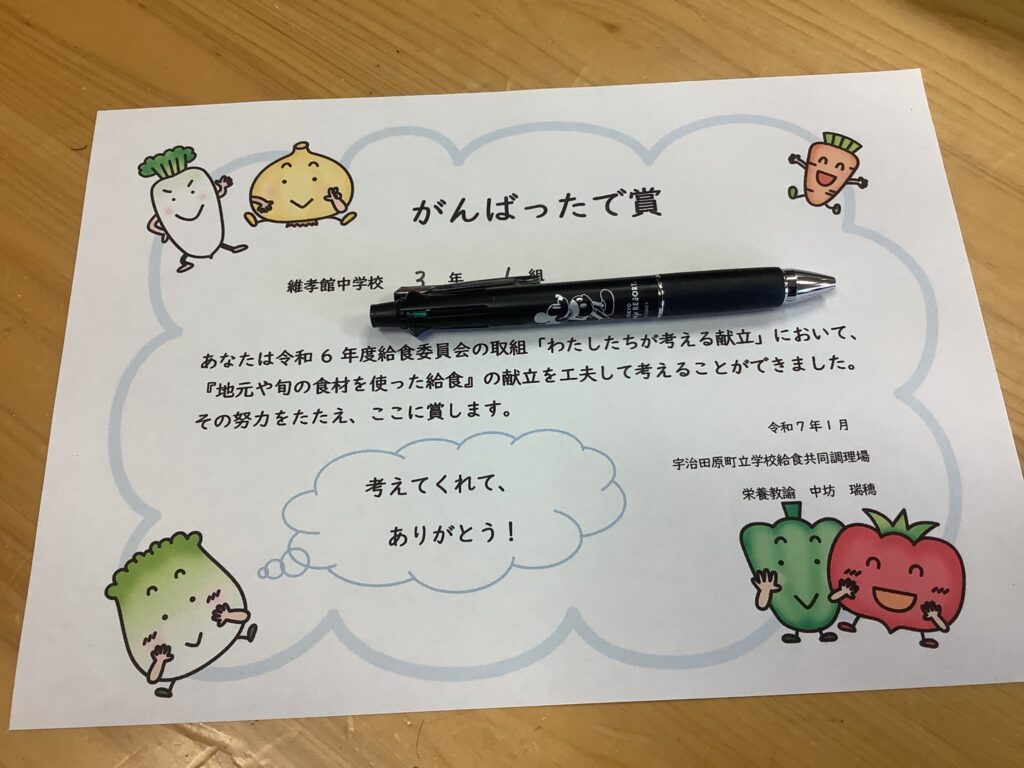 がんばったで賞
維孝館中学校 3 年 1 組
あなたは令和 6 年度給食委員会の取組「わたしたちが考える献立」において、
『地元や旬の食材を使った給食』の献立を工夫して考えることができました。
その努力をたたえ、ここに賞します。
令和7年1月
宇治田原町立学校給食共同調理場
栄養教諭 中坊 瑞穂
考えてくれて、
ありがとう！
RESORT